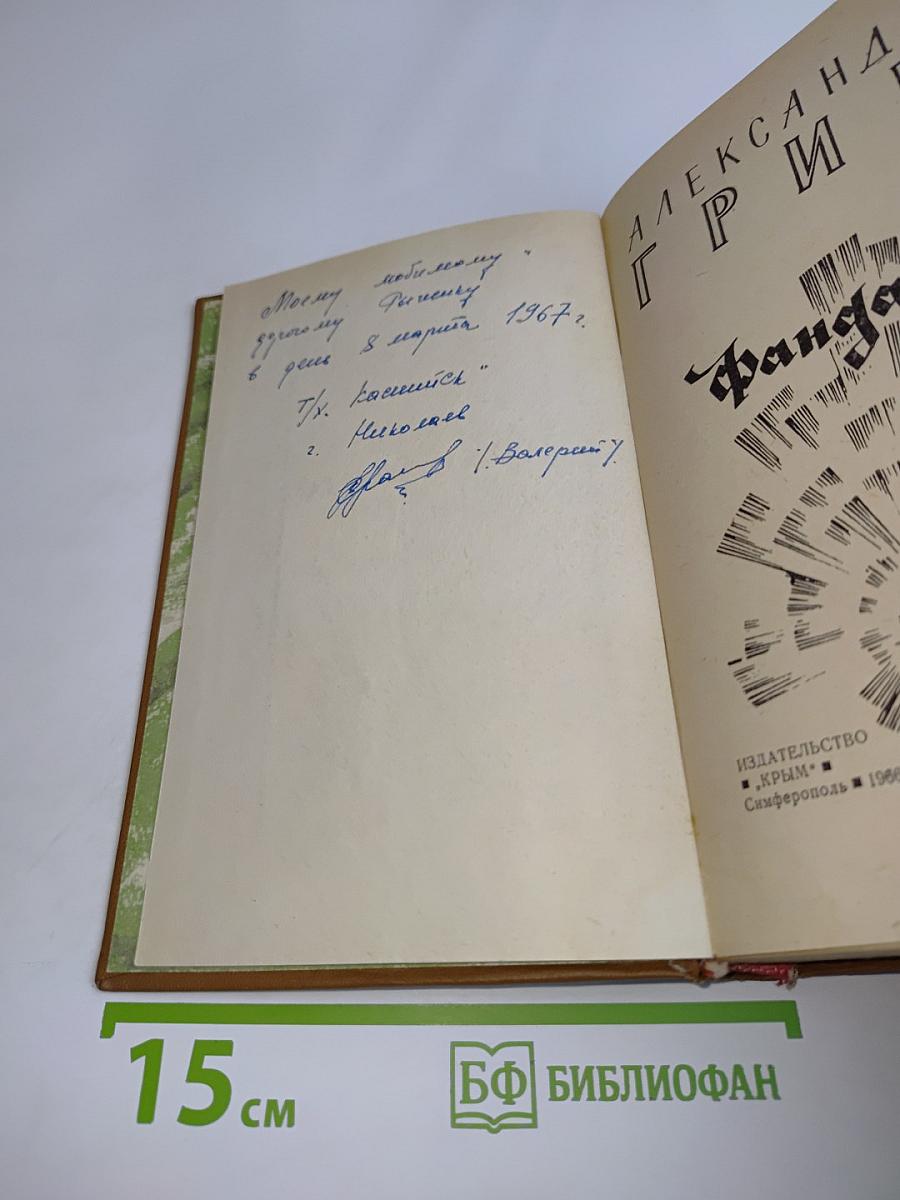 Моему любимому
дорогому Рыжику"
в день 8 марта 1967 г.
т/х. Каспийск"
г. Николаев
/Валерий/.
АЛЕКСАНД
ГРИ
Фанда
ИЗДАТЕЛЬСТВО
"КРЫМ"
Симферополь 1966
15 см
БФ БИБЛИОФАН